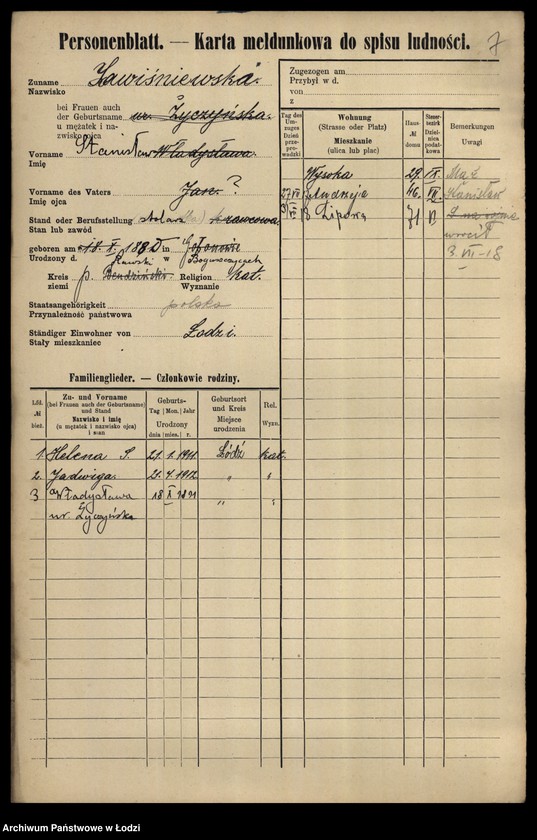 Personenblatt. — Karta meldunkowa do spisu ludności.
7
Zuname Zawiśniewska
Nazwisko
bei Frauen auch
der Geburtsname ur. Życzyńska.
u mężatek i na-
zwisko ojca
Vorname Stanisław Władysława.
Imię
Vorname des Vaters Jan ?
Imię ojca
Stand oder Berufsstellung stolarz krawcowa
Stan lub zawód
geboren am 18. X. 188 in
Urodzony d. w
Kreis p. Bendziński. Religion kat.
ziemi Wyznanie
Staatsangehörigkeit polska
Przynależność państwowa
Ständiger Einwohner von Łodzi.
Stały mieszkaniec
Zugezogen am
Przybył w d.
von
z
Tag des Um-zuges
Dzień prze-prowadzki
Wohnung
(Strasse oder Platz)
Mieszkanie
(ulica lub plac)
Haus №
domu
Steuer-bezirk
Dziel-nica podat-kowa
Bemerkungen
Uwagi
Wysoka 29. IX. Mąż
27 VII Andrzeja 46. VII. Stanisław
Lipowa 71 z wojny
wrócił
3. VII - 18
Familienglieder. — Członkowie rodziny.
Lfd. №
bież.
Zu- und Vorname
(bei Frauen auch der Geburtsname)
und Stand
Nazwisko i imię
(u mężatek i nazwisko ojca)
i stan
Geburts-
Tag | Mon. | Jahr
Urodzony
dnia | mies. | r.
Geburtsort
und Kreis
Miejsce
urodzenia
Rel.
Wyzn.
1. Helena S. 21. 1. 1911 Łódź kat.
2. Jadwiga. 21. 4. 1912 " "
3 Władysława 18 X 1891 " "
ur. Życzyńska
Archiwum Państwowe w Łodzi